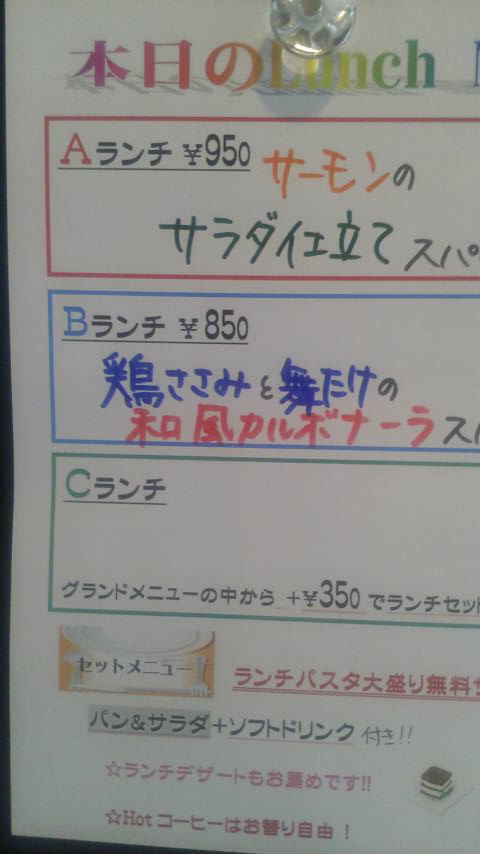 本日のLunch
Aランチ ¥950 サーモンの
サラダ仕立て スパ
Bランチ ¥850
鶏ささみと舞たけの
和風カルボナーラ ス
Cランチ
グランドメニューの中から +¥350 でランチセット
セットメニュー
ランチパスタ大盛り無料
パン&サラダ+ソフトドリンク 付き!!
☆ランチデザートもお薦めです!!
☆Hot コーヒーはお替り自由！